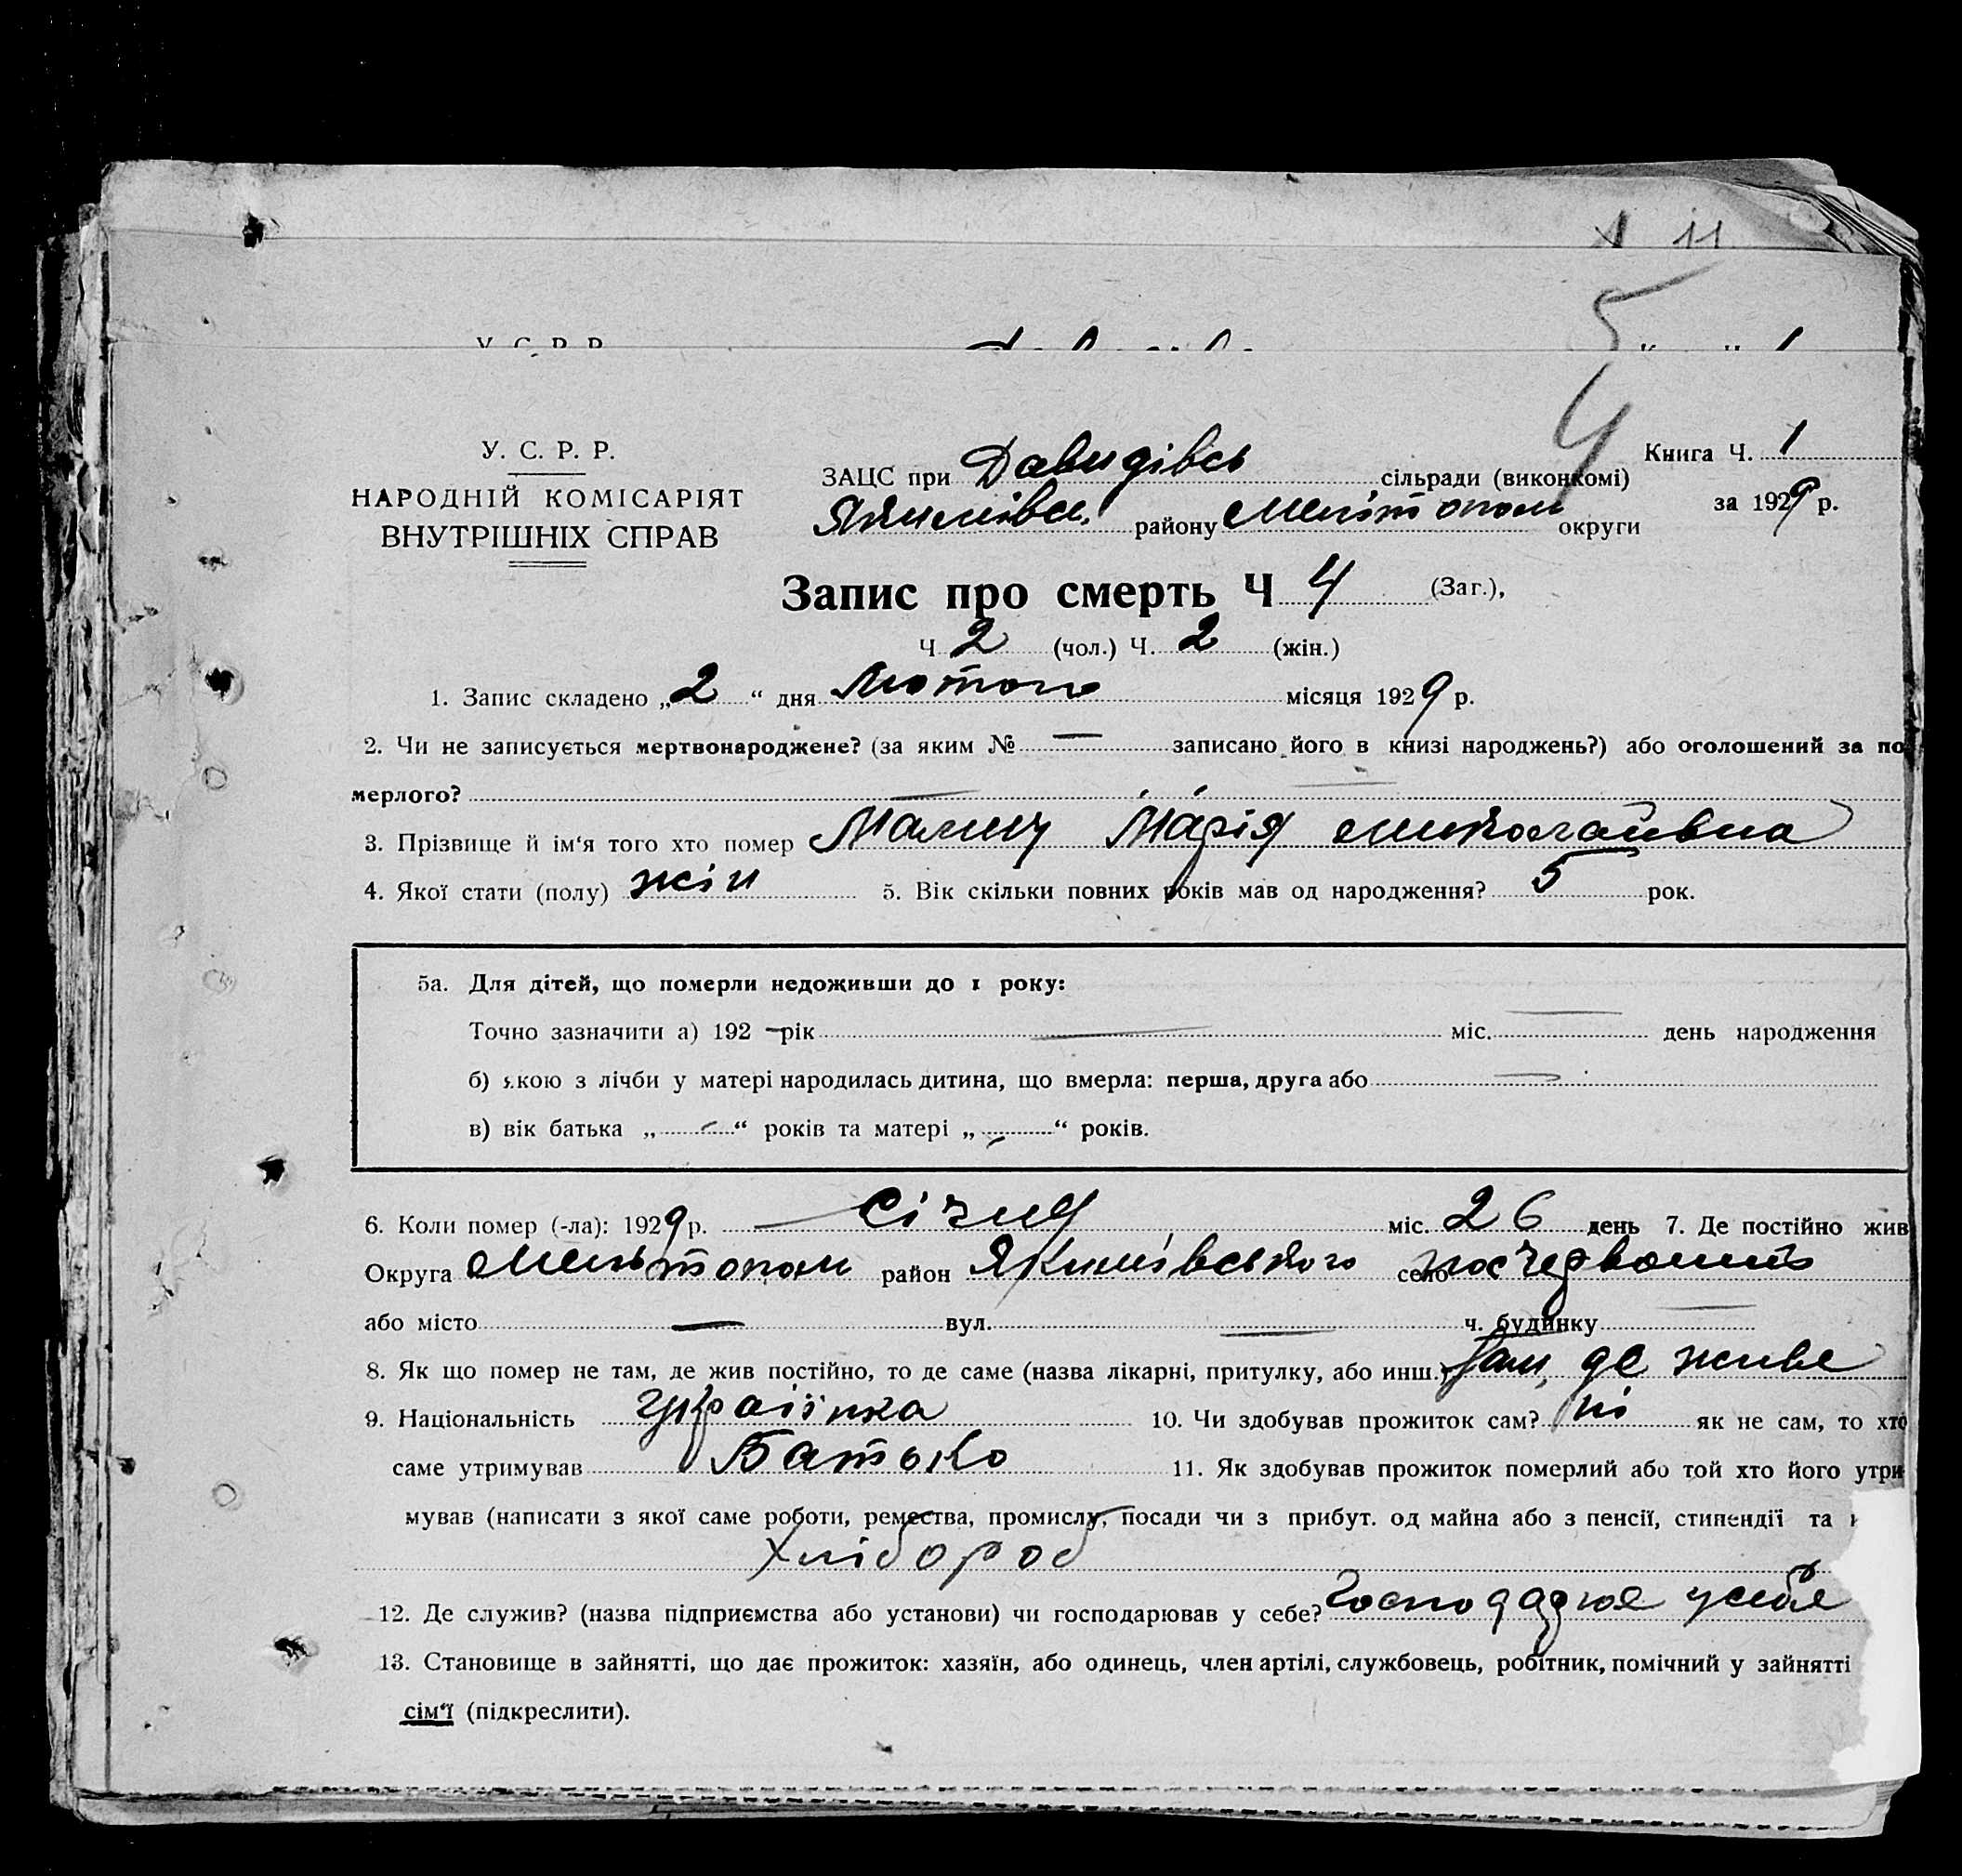 11
5
У. С. Р. Р.
4
У. С. Р. Р.
НАРОДНІЙ КОМІСАРІЯТ
ВНУТРІШНІХ СПРАВ
ЗАЦС при Давидівсь сільради (виконкомі)
Якимівск. району Меліітополь округи
Книга Ч. 1
за 1929 р.
Запис про смерть Ч 4 (Заг.),
Ч 2 (чол.) Ч. 2 (жін.)
1. Запис складено „2“ дня Лютого місяця 1929 р.
2. Чи не записується мертвонароджене? (за яким № — записано його в книзі народжень?) або оголошений за по
мерлого?
3. Прізвище й ім‘я того хто помер Марія Миколаївна
4. Якої стати (полу) жін 5. Вік скільки повних років мав од народження? 5 рок.
5а. Для дітей, що померли недоживши до 1 року:
Точно зазначити а) 192 — рік — міс. — день народження
б) якою з лічби у матері народилась дитина, що вмерла: перша, друга або —
в) вік батька „ — “ років та матері „ — “ років.
6. Коли помер (-ла): 1929 р. Січня міс. 26 день 7. Де постійно жив
Округа Мельтополь район Якимівського село
або місто — вул. — ч. будинку —
8. Як що помер не там, де жив постійно, то де саме (назва лікарні, притулку, або инш.) Там, де живе
9. Національність українка 10. Чи здобував прожиток сам? ні як не сам, то хто
саме утримував Батько 11. Як здобував прожиток померлий або той хто його утри
мував (написати з якої саме роботи, ремества, промислу, посади чи з прибут. од майна або з пенсії, стипендії та
Хлібороб
12. Де служив? (назва підприємства або установи) чи господарював у себе? Господарює у себе
13. Становище в зайнятті, що дає прожиток: хазяїн, або одинець, член артілі, службовець, робітник, помічний у зайнятті
сім‘ї (підкреслити).